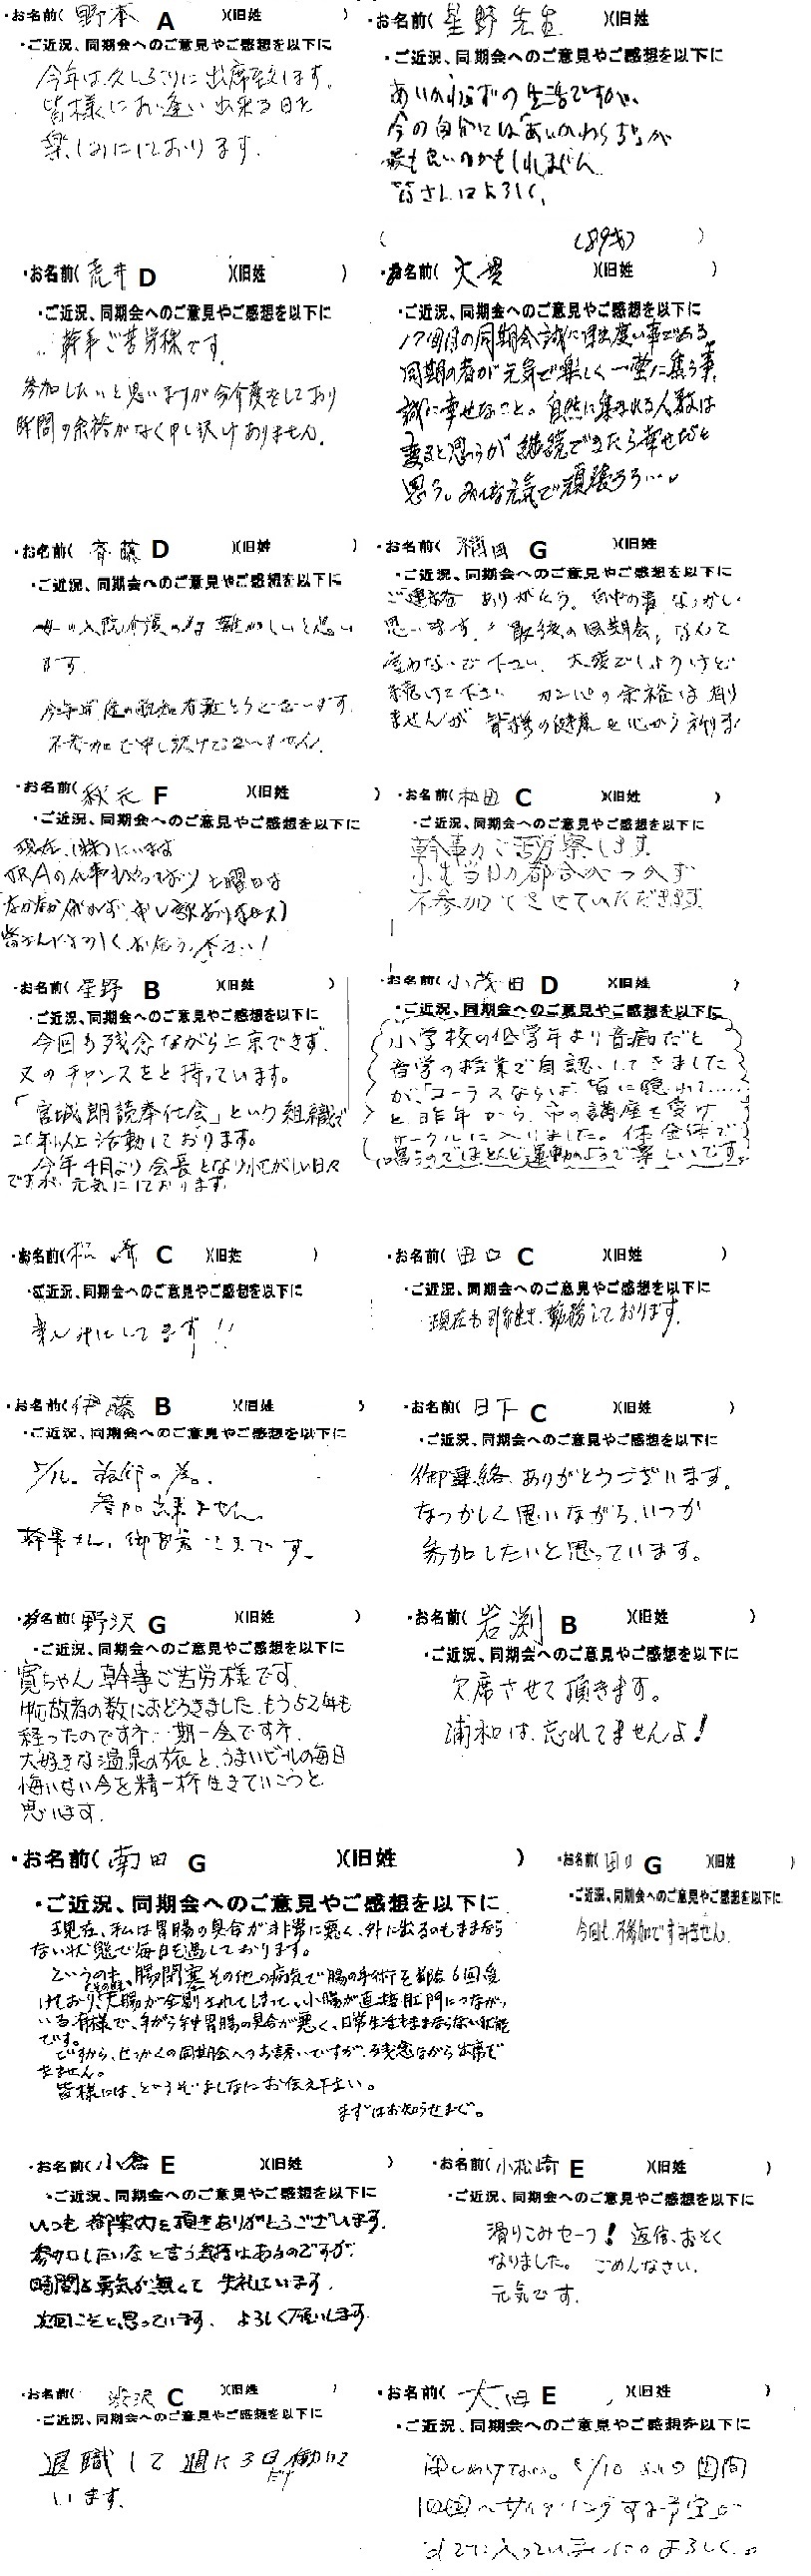 ・お名前( 野本 A )(旧姓 )
・ご近況、同期会へのご意見やご感想を以下に
今年は久しぶりに出席致します。
皆様にお逢い出来る日を
楽しみにしております。
・お名前( 星野 先生 )(旧姓
・ご近況、同期会へのご意見やご感想を以下に
あいかわらずの生活ですが、
今の自分には「あいかわらず」が
最も良いのかもしれません
皆さんによろしく、
( (89才) )
・お名前( 荒井 D )(旧姓 )
・ご近況、同期会へのご意見やご感想を以下に
幹事ご苦労様です。
参加したいと思いますが今介護をしており
時間の余裕がなく申し訳けありません。
・お名前( 大貫 )(旧姓 )
・ご近況、同期会へのご意見やご感想を以下に
17回目の同期会誠に目出度い事である。
同期の者が元気で楽しく一堂に集う事、
誠に幸せなこと。自然に集まれる人数は
変ると思うが継続できたら幸せだと
思う。みんな元気で頑張ろう…。
・お名前( 斉藤 D )(旧姓 )
・ご近況、同期会へのご意見やご感想を以下に
母の入院介護の為難かしいと思い
ます
不参加で申し訳けございません。
・お名前( 稲田 G )(旧姓
・ご近況、同期会へのご意見やご感想を以下に
ご連絡 ありがとう。 なつかしく
思います。「最後の同期会」なんて
言わないで下さい、大変でしょうけど
続けて下さい カンパの余裕は有り
ませんが 皆様の健康を心から祈りま
・お名前( 秋元 F )(旧姓 )
・ご近況、同期会へのご意見やご感想を以下に
現在、(株)にいます
JRAの仕事 土曜日は
なかなか休めず、申し訳ありません)
皆さんによろしくお伝え下さい!
・お名前( 和田 C )(旧姓 )
・ご近況、同期会へのご意見やご感想を以下に
幹事のご苦労察します。
小生当日の都合がつかず
不参加とさせていただきます
・お名前( 星野 B )(旧姓 )
・ご近況、同期会へのご意見やご感想を以下に
今回も残念ながら上京できず、
又のチャンスをと持っています。
「宮城朗読奉仕会」という組織で
20年以上活動しております。
今年4月より会長となり忙がしい日々
ですが、元気にしております。
・お名前( 小茂田 D )(旧姓 )
・ご近況、同期会へのご意見やご感想を以下に
小学校の低学年より音痴だと
音学の授業で自認してきました
が、「コーラスならば」皆に隠れて……
と昨年から、市の講座を受け
サークルに入りました。体全体で
唱うのでほとんど運動のようで楽しいです。
・お名前( 松崎 C )(旧姓 )
・ご近況、同期会へのご意見やご感想を以下に
楽しみにしてます!!
・お名前( 田口 C )(旧姓 )
・ご近況、同期会へのご意見やご感想を以下に
現在も引続き、勤務しております。
・お名前( 伊藤 B )(旧姓 )
・ご近況、同期会へのご意見やご感想を以下に
5/12。旅行の為。
参加出来ません。
幹事さん、御苦労さまです。
・お名前( 日下 C )(旧姓 )
・ご近況、同期会へのご意見やご感想を以下に
御連絡ありがとうございます。
なつかしく思いながら、いつか
参加したいと思っています。
・お名前( 野沢 G )(旧姓 )
・ご近況、同期会へのご意見やご感想を以下に
寛ちゃん 幹事ご苦労様です。
物故者の数におどろきました。もう52年も
経ったのですネ。一期一会ですネ。
大好きな温泉の旅と、うまいビールの毎日
悔いない今を精一杯生きていこうと
思います。
・お名前( 岩渕 B )(旧姓 )
・ご近況、同期会へのご意見やご感想を以下に
欠席させて頂きます。
浦和は、忘れてませんよ!
・お名前( 南田 G )(旧姓 )
・ご近況、同期会へのご意見やご感想を以下に
現在、私は胃腸の具合が非常に悪く、外に出るのもままなら
ない状態で毎日を過しております。
というのは、腸閉塞その他の病気で腸の手術を都合6回受
けており、その為大腸が全剔されてしまって、小腸が直接肛門につながって
いる有様で、年がら年中胃腸の具合が悪く、日常生活もままならない状態
です。
ですから、せっかくの同期会へのお誘いですが、残念ながら出席で
きません。
皆様には、どうぞよしなにお伝え下さい。
まずはお知らせまで。
・お名前( 田口 G )(旧姓 )
・ご近況、同期会へのご意見やご感想を以下に
今回も、不参加ですみません。
・お名前( 小倉 E )(旧姓 )
・ご近況、同期会へのご意見やご感想を以下に
いつも御案内を頂きありがとうございます。
参加したいなと言う気持はあるのですが、
時間と勇気が無くて 失礼しています。
次回こそと思っています。よろしくお願いします。
・お名前( 小松崎 E )(旧姓 )
・ご近況、同期会へのご意見やご感想を以下に
滑りこみセーフ! 返信、おそく
なりました。ごめんなさい。
元気です。
・お名前( 渋沢 C )(旧姓 )
・ご近況、同期会へのご意見やご感想を以下に
退職して週に3日だけ働いて
います。
・お名前( 大田 E )(旧姓 )
・ご近況、同期会へのご意見やご感想を以下に
申しわけない。5/10 週間
四国へサイクリングする予定が
すでに入っています。 よろしく。